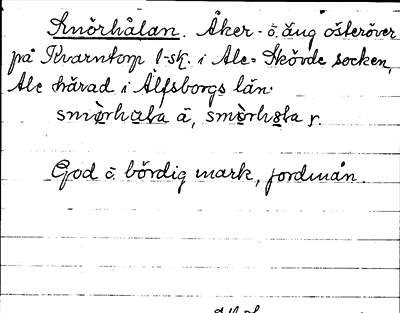 Smörhålan. Åker- o. äng österöver
på Kvarntorp 1-sk. i Ale-Skövde socken,
Ale härad i Älfsborgs län.
smörhåla ä, smörhåla y.
God o. bördig mark, jordmån.